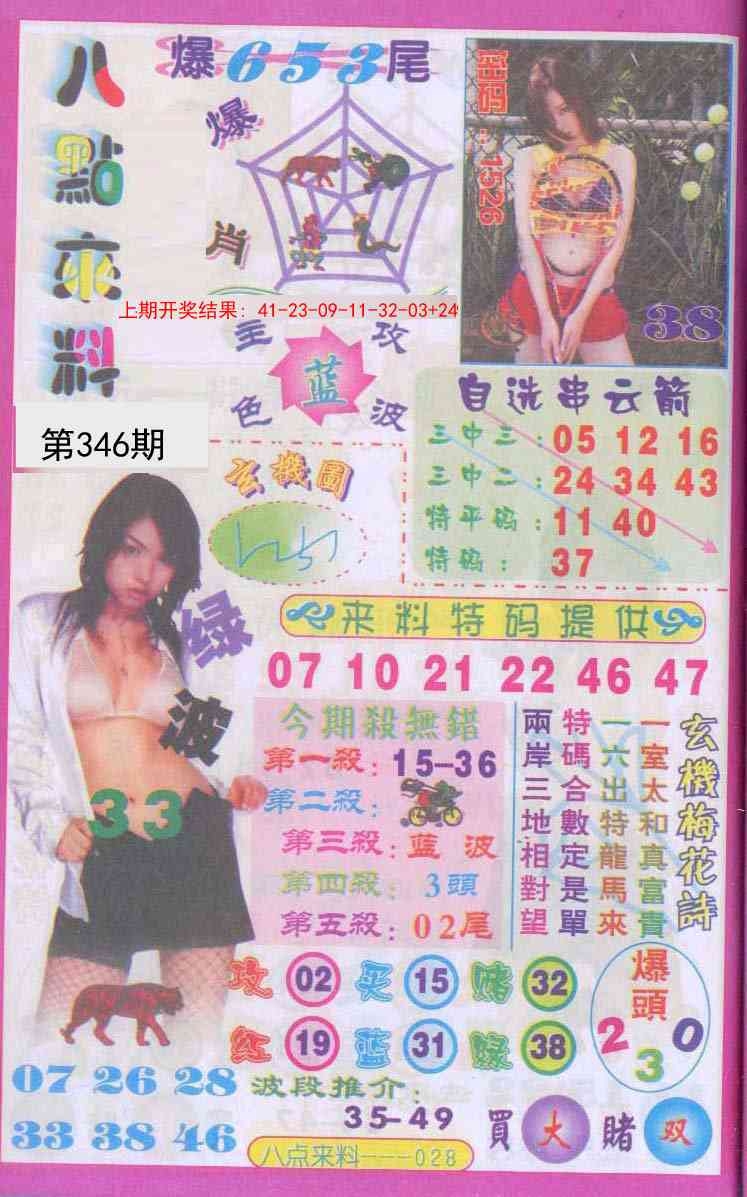 八點來料
爆653尾
爆肖
密码:1526
38
上期开奖结果: 41-23-09-11-32-03+249
主攻
蓝
色波
第346期
自选串云箭
三中三:05 12 16
三中二:24 34 43
特平码:11 40
特码:37
玄機圖
绿波
33
来料特码提供
07 10 21 22 46 47
今期殺無錯
第一殺:15-36
第二殺:
第三殺:蓝波
第四殺:3頭
第五殺:02尾
玄機梅花詩
一室太和真富貴
一六出特龍馬來
特碼合數定是單
兩岸三地相對望
攻 02 买 15 赌 32
红 19 蓝 31 绿 38
爆頭
2 3 0
07 26 28
33 38 46
波段推介:
35-49
買 大 賭 双
八点来料---028